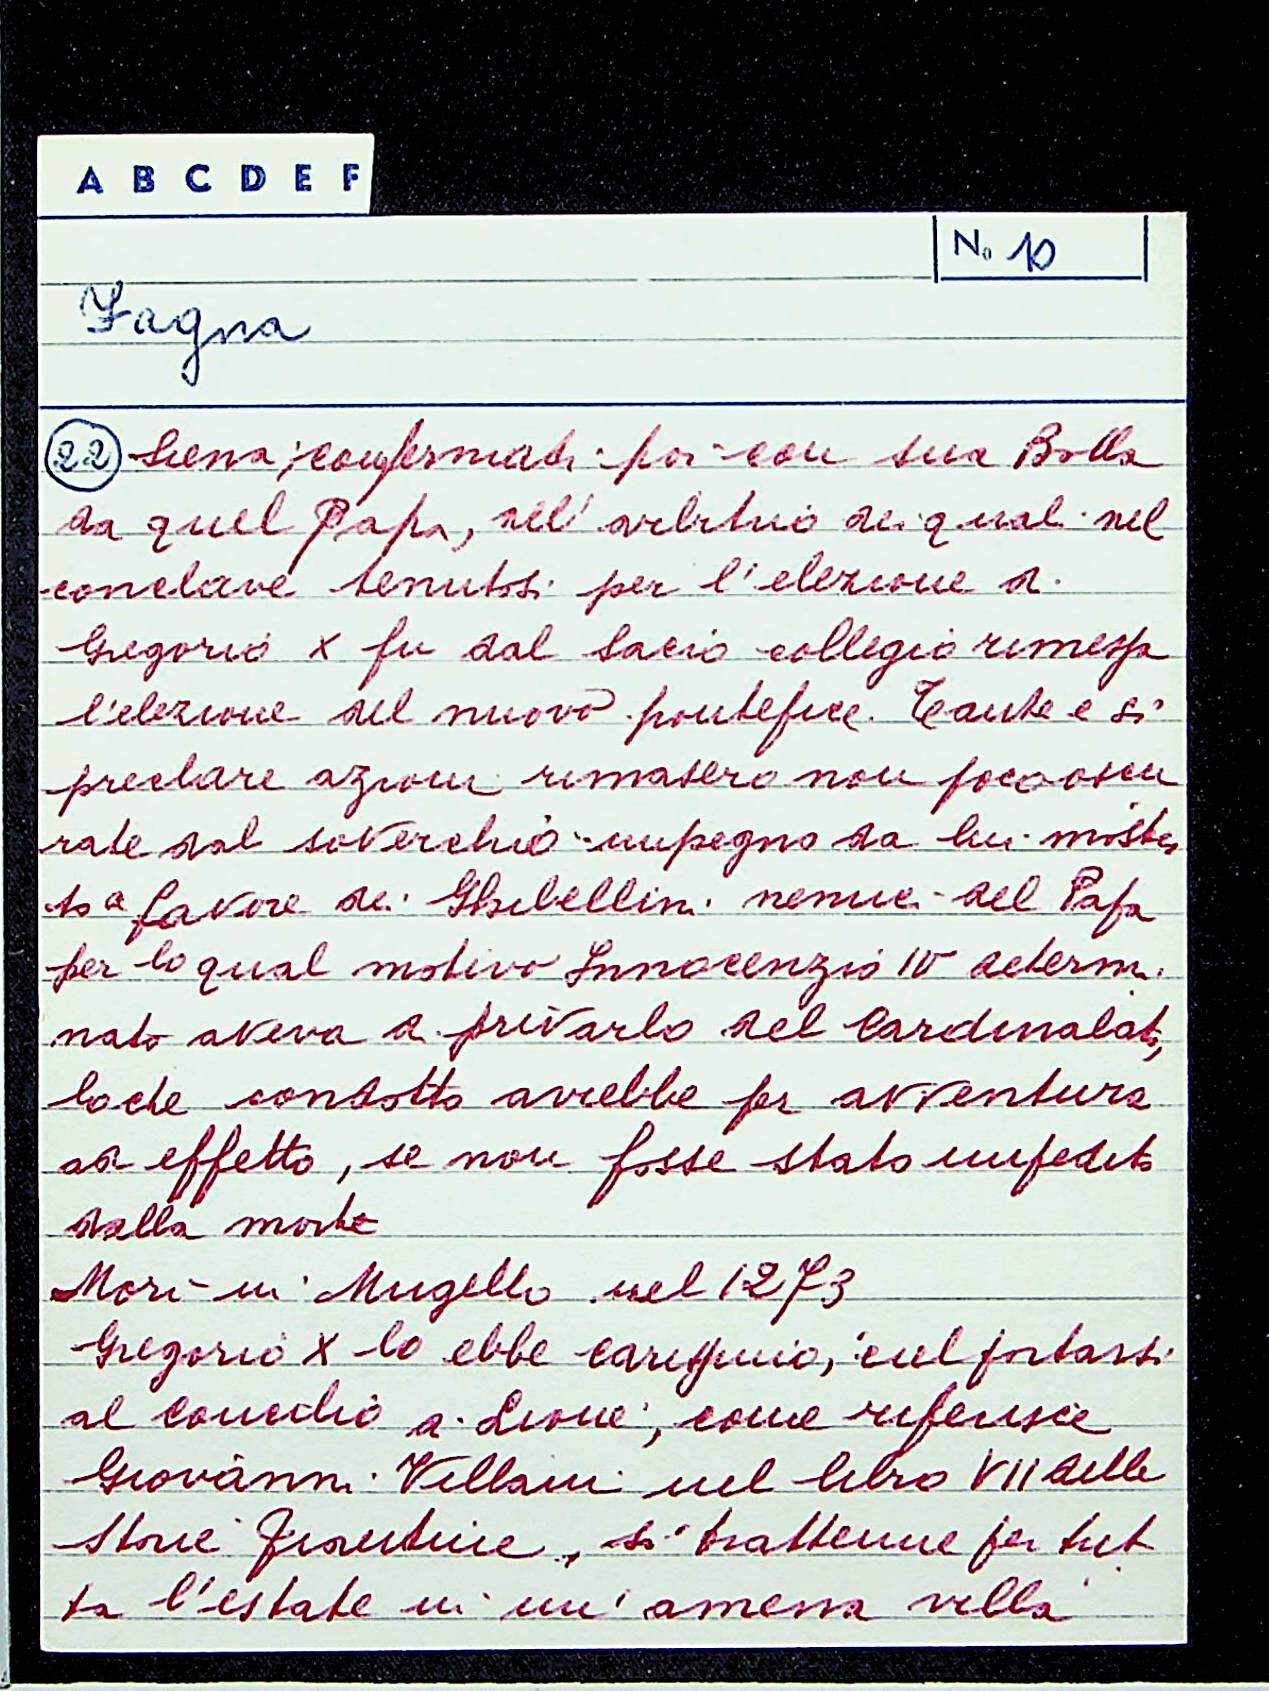 A B C D E F
No 10
Fagna
22 Siena, confermati poi con sua Bolla
da quel Papa, all'arbitrio dei quali nel
conclave tenutosi per l'elezione di
Gregorio X fu dal Sacro collegio rimessa
l'elezione del nuovo pontefice. Tante e si
preclare azioni rimasero non poco oscu
rate dal soverchio impegno da lui mostra
to a favore dei Ghibellini nemici del Papa
per lo qual motivo Innocenzio IV determi
nato aveva di privarlo del Cardinalato,
loche condotto avrebbe per avventura
ad effetto, se non fosse stato impedito
dalla morte
Morì in Mugello nel 1273
Gregorio X lo ebbe carissimo, e nel portarsi
al Concilio di Lione, come riferisce
Giovanni Villani nel libro VII delle
Storie Fiorentine, si trattenne per tut
ta l'estate in un'amena villa